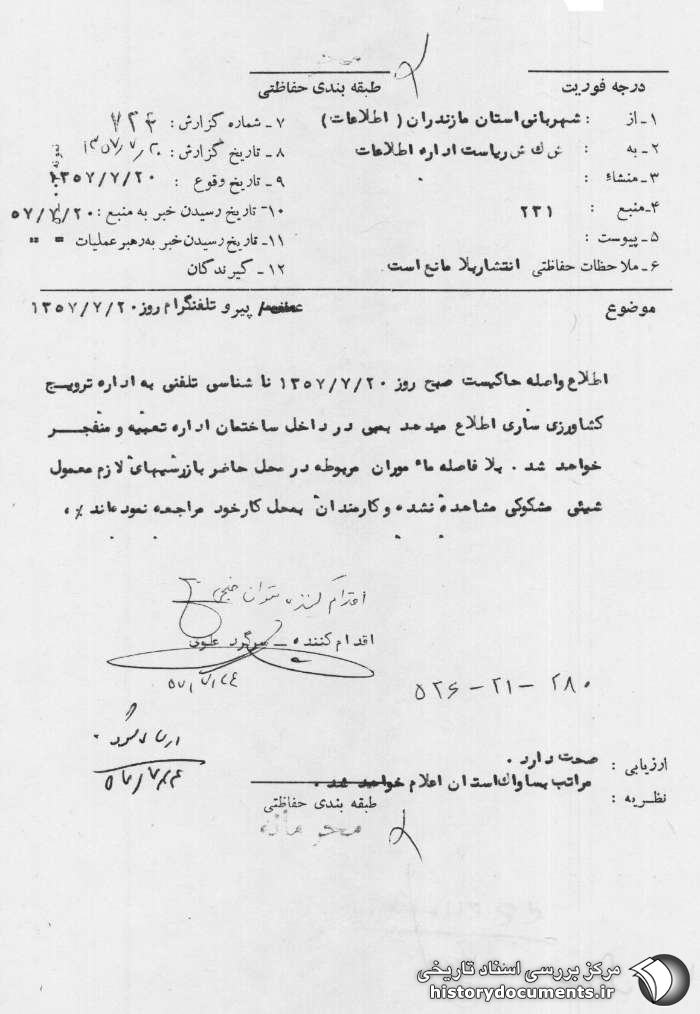 درجه فوریت
طبقه بندی حفاظتی
۱ـ از : شهربانی استان مازندران ( اطلاعات )
۲ـ به : ریاست اداره اطلاعات
۳ـ منشاء :
۴ـ منبع : ۲۳۱
۵ـ پیوست :
۶ـ ملاحظات حفاظتی انتشار بلا مانع است .
۷ـ شماره گزارش :
۸ـ تاریخ گزارش : ۱۳۵۷/۷/۲۰
۹ـ تاریخ وقوع : ۱۳۵۷/۷/۲۰
۱۰ـ تاریخ رسیدن خبر به منبع : ۵۷/۷/۲۰
۱۱ـ تاریخ رسیدن خبر به رهبر عملیات " "
۱۲ـ گیرندگان
موضوع
پیرو تلفنگرام روز ۱۳۵۷/۷/۲۰
اطلاع واصله حاکیست صبح روز ۱۳۵۷/۷/۲۰ نا شناسی تلفنی به اداره ترویج
کشاورزی ساری اطلاع میدهد بمبی در داخل ساختمان اداره تعبیه و منفجر
خواهد شد . بلا فاصله ماموران مربوطه در محل حاضر بازرسیهای لازم معمول
شیئی مشکوکی مشاهده نشده و کارمندان بمحل کارخود مراجعه نموده‌اند ٪ .
اقدام کننده ستوان
اقدام کننده ـ سرگرد علوی
۵۲۶ - ۲۱ - ۲۸۰
ارزیابی : صحت دارد .
نظریه : مراتب بساواک استان اعلام خواهد شد .
طبقه بندی حفاظتی
محرمانه
مرکز بررسی اسناد تاریخی
historydocuments.ir